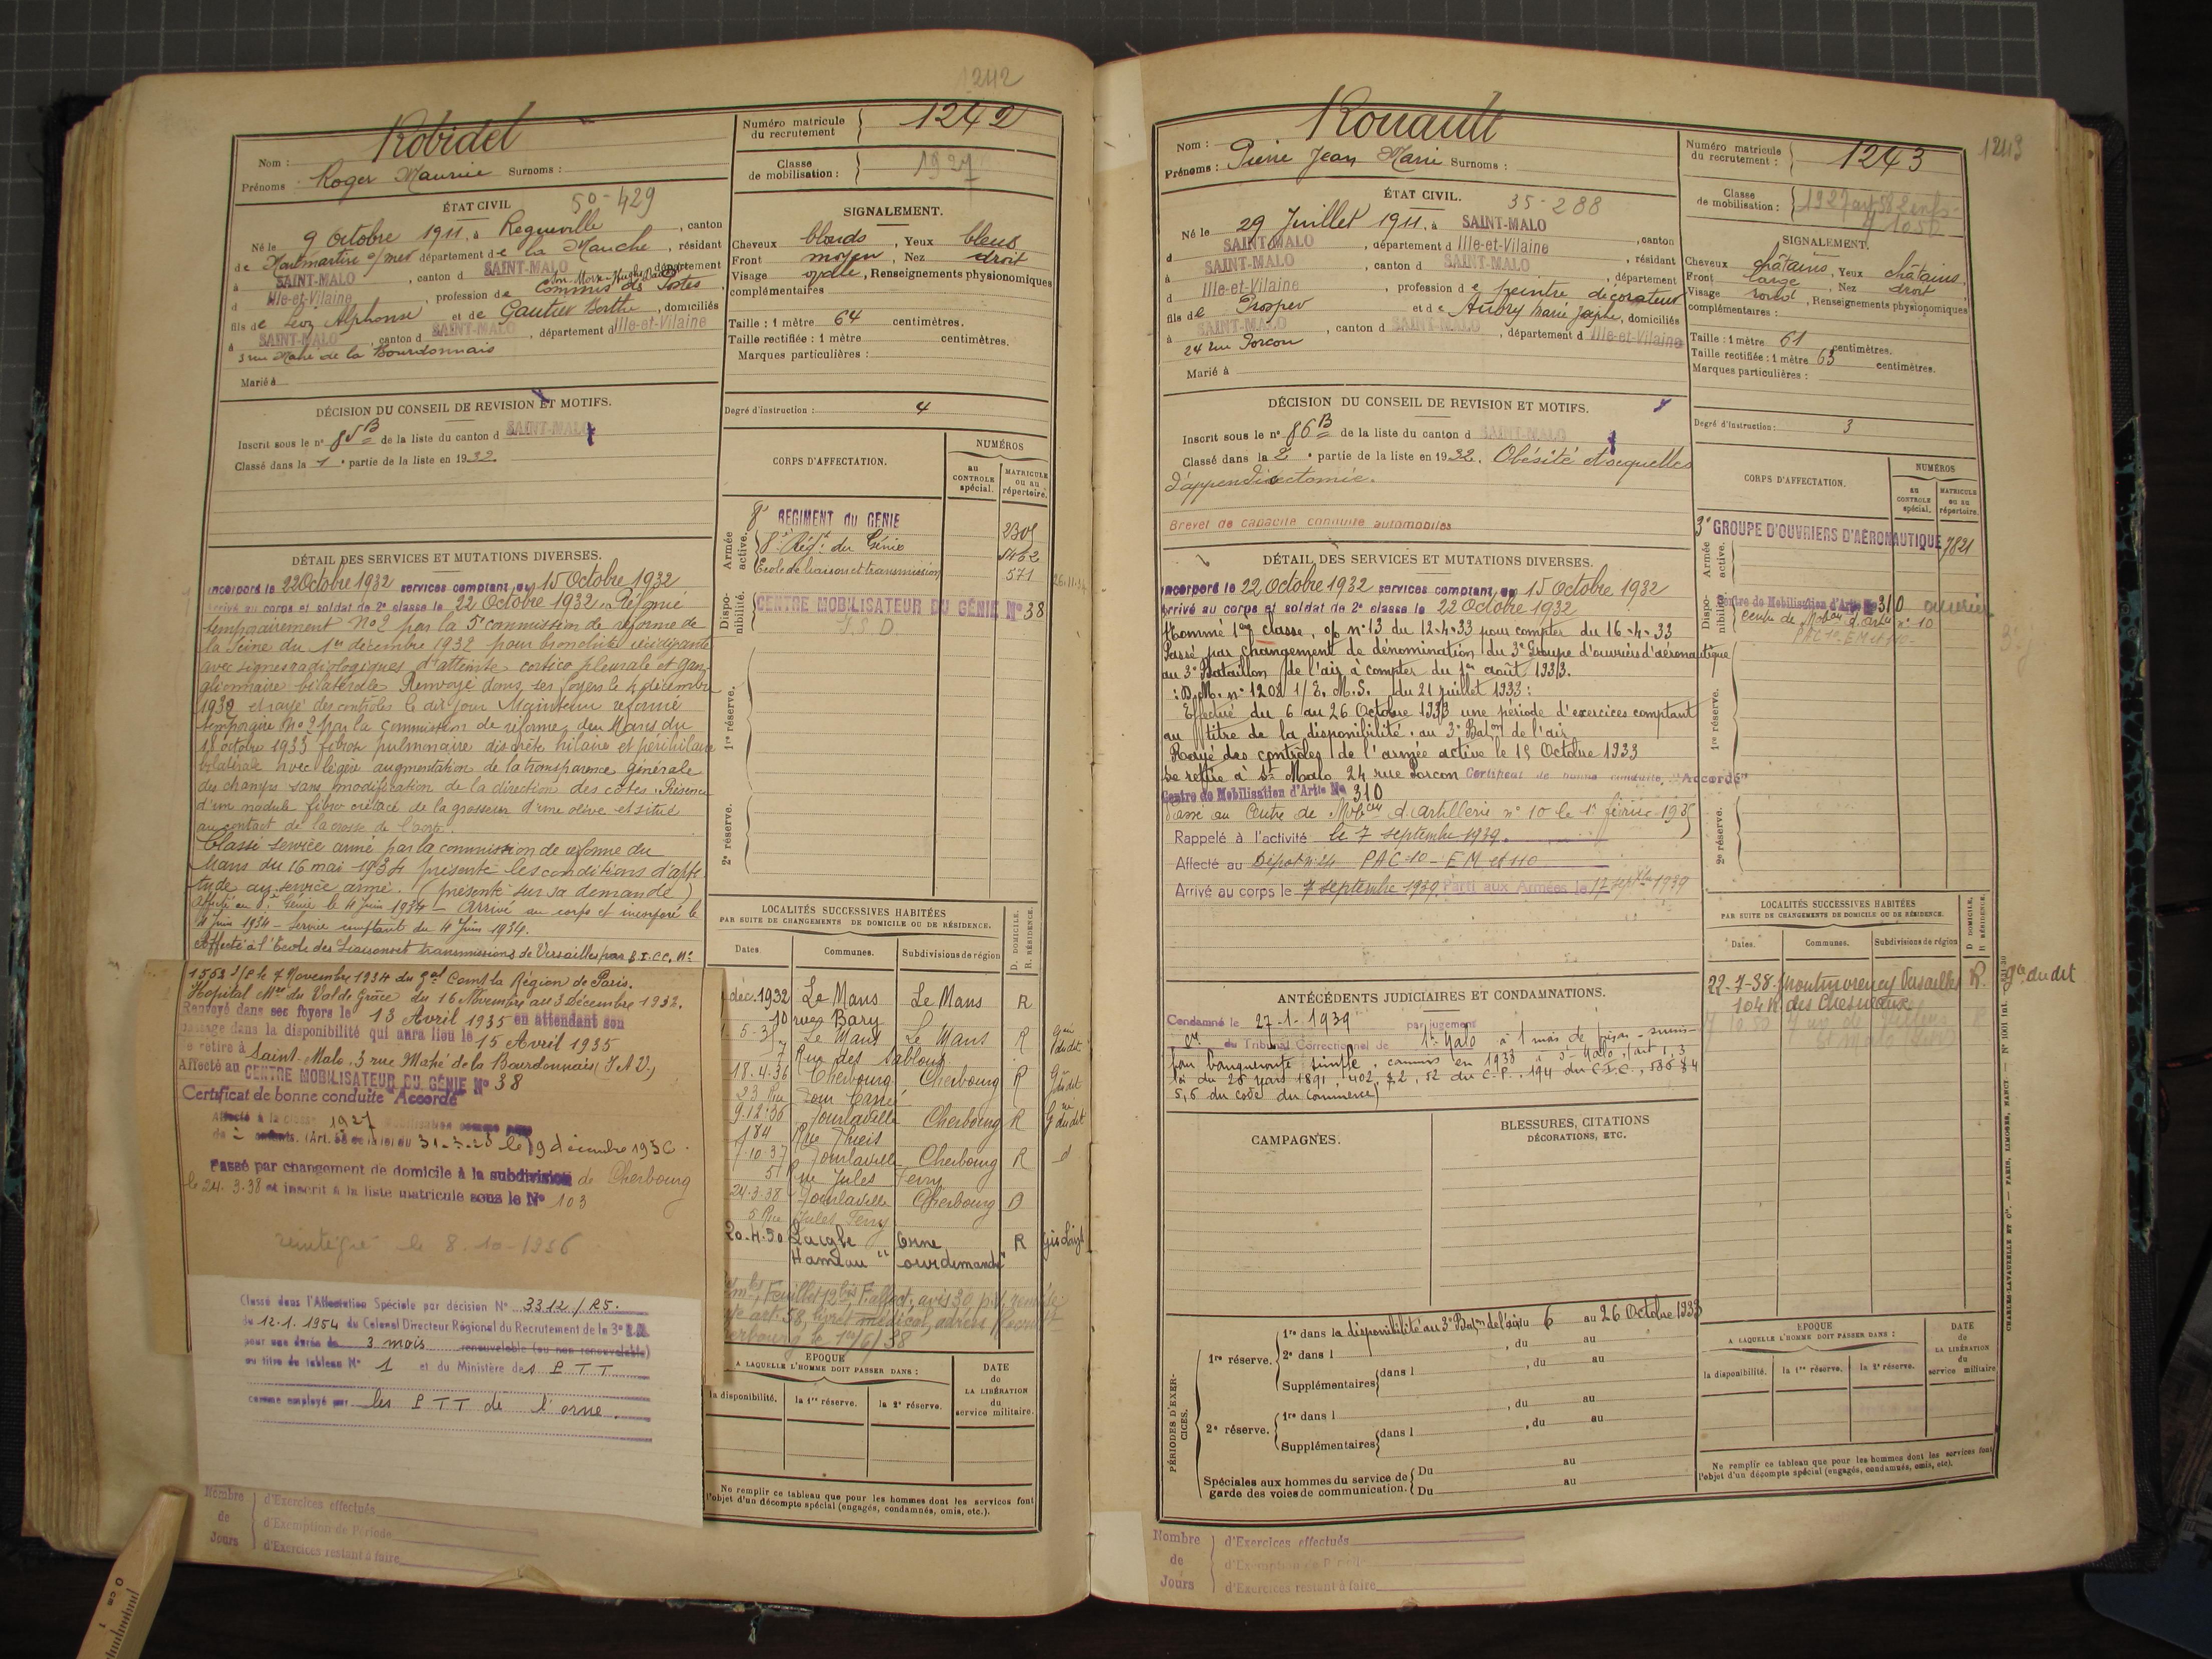 1242
Nom : Robidel
Prénoms : Roger Maurice Surnoms :
Numéro matricule du recrutement 1242
Classe de mobilisation : 1927
ÉTAT CIVIL 50-429
Né le 9 Octobre 1911, à , canton
de Montmartin s/mer département de la Manche, résidant
à SAINT-MALO, canton d SAINT-MALO, département
d Ille-et-Vilaine, profession de Commis des Postes
fils de Léon Alphonse et de Gautier Berthe, domiciliés
à SAINT-MALO, canton d SAINT-MALO, département d Ille-et-Vilaine
3 rue Mahé de la Bourdonnais
Marié à
SIGNALEMENT.
Cheveux blonds, Yeux bleus
Front moyen, Nez droit
Visage ovale, Renseignements physionomiques
complémentaires
Taille : 1 mètre 64 centimètres.
Taille rectifiée : 1 mètre centimètres.
Marques particulières :
Degré d'instruction : 4
DÉCISION DU CONSEIL DE REVISION ET MOTIFS.
Inscrit sous le n° 85 B de la liste du canton d SAINT-MALO
Classé dans la 1e partie de la liste en 1932.
CORPS D'AFFECTATION.
NUMÉROS
au CONTROLE spécial.
MATRICULE ou au répertoire.
Armée active.
8e REGIMENT du GENIE 2305
8e Régt. du Génie 1462
Ecole de liaison et transmission 571
Disponibilité.
CENTRE MOBILISATEUR DU GÉNIE N° 38
1re réserve.
2e réserve.
DÉTAIL DES SERVICES ET MUTATIONS DIVERSES.
Incorporé le 22 Octobre 1932 services comptant du 15 Octobre 1932
Arrivé au corps et soldat de 2e classe le 22 Octobre 1932. Réformé
temporairement N°2 par la 5e commission de réforme de
la Seine du 1er décembre 1932 pour bronchite récidivante
avec signes radiologiques d'atteinte cortico pleurale et gan-
glionnaire bilatérale Renvoyé dans ses foyers le 4 décembre
1932 et rayé des contrôles le dit jour Maintenu réformé
temporaire N°2 par la commission de réforme du Mans du
18 octobre 1933 fibrose pulmonaire discrète hilaire et périhilaire
bilatérale avec légère augmentation de la transparence générale
des champs sans modification de la direction des côtes. Présence
d'un nodule fibro crétacé de la grosseur d'une olive et situé
au contact de la crosse de l'aorte.
Classé service armé par la commission de réforme du
Mans du 16 mai 1934 présente les conditions d'apti
tude au service armé. (présenté sur sa demande)
Affecté au 8e Génie le 4 Juin 1934 - Arrivé au corps et incorporé le
4 Juin 1934 - Service comptant du 4 Juin 1934.
Affecté à l'Ecole des Liaisons et transmissions de Versailles par
1553 le 7 Novembre 1934 du Gal Comt la Région de Paris.
Hopital Mre du Val de Grâce du 16 Novembre au 3 Décembre 1932.
Renvoyé dans ses foyers le 13 Avril 1935 en attendant son
passage dans la disponibilité qui aura lieu le 15 Avril 1935
Se retire à Saint-Malo 3 rue Mahé de la Bourdonnais (I.&V.)
Affecté au CENTRE MOBILISATEUR DU GÉNIE N° 38
Certificat de bonne conduite "Accordé"
Affecté à la classe 1927 de mobilisation comme père
de 2 enfants. (Art. 58 de la loi du 31-3-28 le 9 décembre 1936.
Passé par changement de domicile à la subdivision de Cherbourg
le 24.3.38 et inscrit à la liste matricule sous le N° 103
réintégré le 8.10-1956
Classé dans l'Affectation Spéciale par décision N° 3312/RS.
du 12.1.1954 du Colonel Directeur Régional du Recrutement de la 3e R.M.
pour une durée de 3 mois renouvelable (ou non renouvelable)
au titre du tableau N° 1 et du Ministère des P T T
comme employé par les P T T de l'orne.
Nombre de Jours
d'Exercices effectués
d'Exemption de Période
d'Exercices restant à faire
LOCALITÉS SUCCESSIVES HABITÉES
PAR SUITE DE CHANGEMENTS DE DOMICILE OU DE RÉSIDENCE.
Dates. Communes. Subdivisions de région D. DOMICILE. R. RÉSIDENCE.
déc. 1932 Le Mans Le Mans R
10 rue Bary
Le Mans Le Mans R
7 Rue des Sablons
18.4.36 Cherbourg Cherbourg R
23 Rue Tour Carrée
9.12.36 Tourlaville Cherbourg R
184 Rue Thiers
1.10.37 Tourlaville Cherbourg R
51 rue Jules Ferry
24-3-38 Tourlaville Cherbourg D
5 Rue Jules Ferry
20.4.50 Laigle Orne R
Hameau
EPOQUE
A LAQUELLE L'HOMME DOIT PASSER DANS :
la disponibilité. la 1re réserve. la 2e réserve.
DATE de LA LIBÉRATION du service militaire.
Ne remplir ce tableau que pour les hommes dont les services font
l'objet d'un décompte spécial (engagés, condamnés, omis, etc.).
1243
Nom : Rouault
Prénoms : Pierre Jean Marie Surnoms :
Numéro matricule du recrutement : 1243
Classe de mobilisation :
ÉTAT CIVIL. 35-288
Né le 29 Juillet 1911, à SAINT-MALO
d SAINT-MALO, département d Ille-et-Vilaine, canton
à SAINT-MALO, canton d SAINT-MALO, résidant
d Ille-et-Vilaine, département
profession de peintre décorateur
fils de Prosper et de Aubry Marie Josèphe, domiciliés
à SAINT-MALO, canton d SAINT-MALO, département d Ille-et-Vilaine
24 rue Porcon
Marié à
SIGNALEMENT.
Cheveux châtains, Yeux châtains,
Front large, Nez droit,
Visage rond, Renseignements physionomiques
complémentaires :
Taille : 1 mètre 61 centimètres.
Taille rectifiée : 1 mètre 63 centimètres.
Marques particulières :
Degré d'instruction : 3
DÉCISION DU CONSEIL DE REVISION ET MOTIFS.
Inscrit sous le n° 86 B de la liste du canton d SAINT-MALO
Classé dans la 2e partie de la liste en 1932. Obésité et sequelles
d'appendicectomie.
Brevet de capacité conduite automobiles
CORPS D'AFFECTATION.
NUMÉROS
au CONTROLE spécial.
MATRICULE ou au répertoire.
Armée active.
3e GROUPE D'OUVRIERS D'AÉRONAUTIQUE 7821
Disponibilité.
Centre de Mobilisation d'Artie N° 310 ouvrier
Centre de Mobon d'Artie n° 10
1re réserve.
2e réserve.
DÉTAIL DES SERVICES ET MUTATIONS DIVERSES.
Incorporé le 22 Octobre 1932 services comptant du 15 Octobre 1932
Arrivé au corps et soldat de 2e classe le 22 Octobre 1932
Nommé 1ère classe, o/o n° 13 du 12-4-33 pour compter du 16-4-33
Passé par changement de dénomination du 3e Groupe d'ouvriers d'aéronautique
au 3e Bataillon de l'air à compter du 1er août 1933.
: D.M. n° 1208 1/E.M.S. du 21 juillet 1933 :
Effectué du 6 au 26 Octobre 1933 une période d'exercices comptant
au titre de la disponibilité. au 3e Baton de l'air
Rayé des contrôles de l'armée active le 15 Octobre 1933
Se retire à St Malo 24 rue Porcon Certificat de bonne conduite, "Accordé"
Centre de Mobilisation d'Artie N° 310
Passé au Centre de Mobon d'Artillerie n° 10 le 1er février 193
Rappelé à l'activité le 7 septembre 1939
Affecté au Dépôt n° 24 PAC 10 - EM et 110
Arrivé au corps le 7 septembre 1939. Parti aux Armées le 12 septbre 1939
ANTÉCÉDENTS JUDICIAIRES ET CONDAMNATIONS.
Condamné le 27-1-1939 par jugement
du Tribunal Correctionel de St Malo à 1 mois de prison - sursis -
pour banqueroute simple, commis en 1938 à St Malo, (art 1, 3
loi du 26 mars 1891, 402, 72, 52 du C.P., 194 du C.I.C., 586 § 4
5, 6 du code du commerce)
CAMPAGNES.
BLESSURES, CITATIONS
DÉCORATIONS, ETC.
LOCALITÉS SUCCESSIVES HABITÉES
PAR SUITE DE CHANGEMENTS DE DOMICILE OU DE RÉSIDENCE.
Dates. Communes. Subdivisions de région D DOMICILE. R RÉSIDENCE.
22-7-38. Montmorency Versailles R. gie dudit
104 R. des Chesneaux
PÉRIODES D'EXERCICES.
1re réserve.
1re dans la disponibilité au 3e Baton de l'air du 6 au 26 Octobre 1933
2e dans l , du au
Supplémentaires dans l , du au
, du au
2e réserve.
1re dans l , du au
Supplémentaires dans l , du au
Spéciales aux hommes du service de
garde des voies de communication.
Du au
Du au
EPOQUE
A LAQUELLE L'HOMME DOIT PASSER DANS :
la disponibilité. la 1re réserve. la 2e réserve.
DATE de LA LIBÉRATION du service militaire
Ne remplir ce tableau que pour les hommes dont les services font
l'objet d'un décompte spécial (engagés, condamnés, omis, etc).
CHARLES-LAVAUZELLE ET Cie. — PARIS, LIMOGES, NANCY. — N° 1001
Nombre de Jours
d'Exercices effectués
d'Exemption de Période
d'Exercices restant à faire
0 cm 1